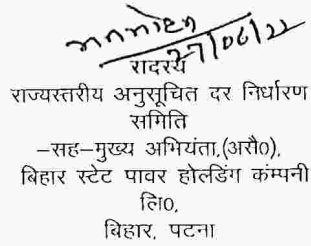 27/06/22
रादस्य
राज्यस्तरीय अनुसूचित दर निर्धारण
समिति
–सह–मुख्य अभियंता,(असै०),
बिहार स्टेट पावर होल्डिंग कंम्पनी
लि०,
बिहार, पटना